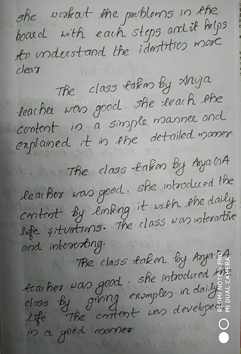 she workout the problems in the
board with each steps and it helps
to understand the identities more
clear
The class taken by Anuja
teacher was good. she teach the
content in a simple manner and
explained it in the detailed manner
The class taken by Arya GA
teacher was good. she introduced the
content by linking it with the daily
life situations. The class was interactive
and interesting.
The class taken by Arya GA
teacher was good. she introduced the
class by giving examples in daily
life The content was developed
in a good manner
REDMI NOTE 5 PRO
MI DUAL CAMERA